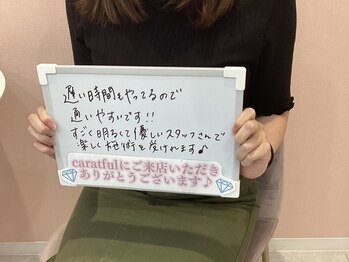 遅い時間もやってるので
通いやすいです!!
すごく明るくて優しいスタッフさんで
楽しく施術を受けれます♪
caratfulにご来店いただき
ありがとうございます♪